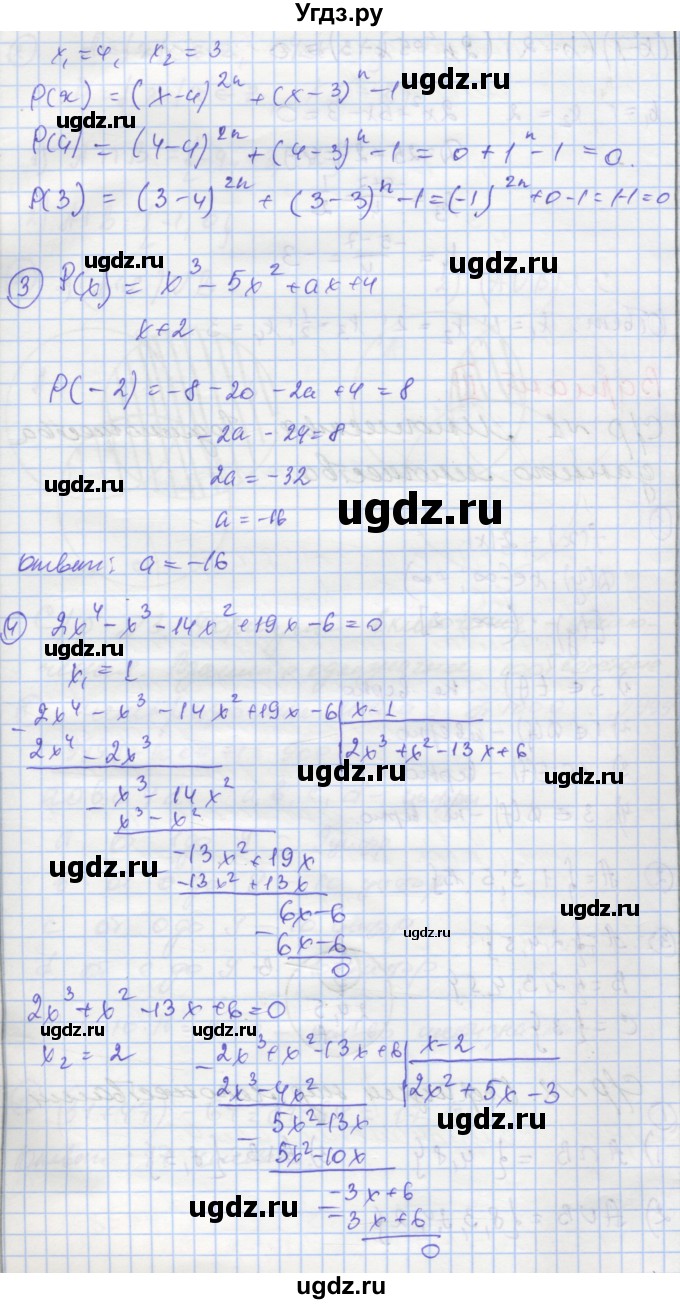 Угдз.ру
x₁ = 4, x₂ = 3
P(x) = (x-4)²ⁿ + (x-3)ⁿ - 1
ugdz.ru
ugdz.ru
P(4) = (4-4)²ⁿ + (4-3)ⁿ - 1 = 0 + 1ⁿ - 1 = 0.
P(3) = (3-4)²ⁿ + (3-3)ⁿ - 1 = (-1)²ⁿ + 0 - 1 = 1-1 = 0
ugdz.ru
ugdz.ru
③ P(x) = x³ - 5x² + ax + 4
x+2
P(-2) = -8 - 20 - 2a + 4 = 8
-2a - 24 = 8
ugdz.ru
2a = -32
ugdz.ru
a = -16
Ответ: a = -16
④ 2x⁴ - x³ - 14x² + 19x - 6 = 0
ugdz.ru
x₁ = 1
- 2x⁴ - x³ - 14x² + 19x - 6 | x - 1
2x⁴ - 2x³ | 2x³ + x² - 13x + 6
ugdz.ru
ugdz.ru
- x³ - 14x²
x³ - x²
-13x² + 19x
ugdz.ru
- -13x² + 13x
6x - 6
ugdz.ru
ugdz.ru
- 6x - 6
0
2x³ + x² - 13x + 6 = 0
ugdz.ru
ugdz.ru
x₂ = 2 - 2x³ + x² - 13x + 6 | x - 2
2x³ - 4x² | 2x² + 5x - 3
ugdz.ru
- 5x² - 13x
5x² - 10x
-3x + 6
ugdz.ru
- -3x + 6
0
ugdz.ru
Угдз.ру